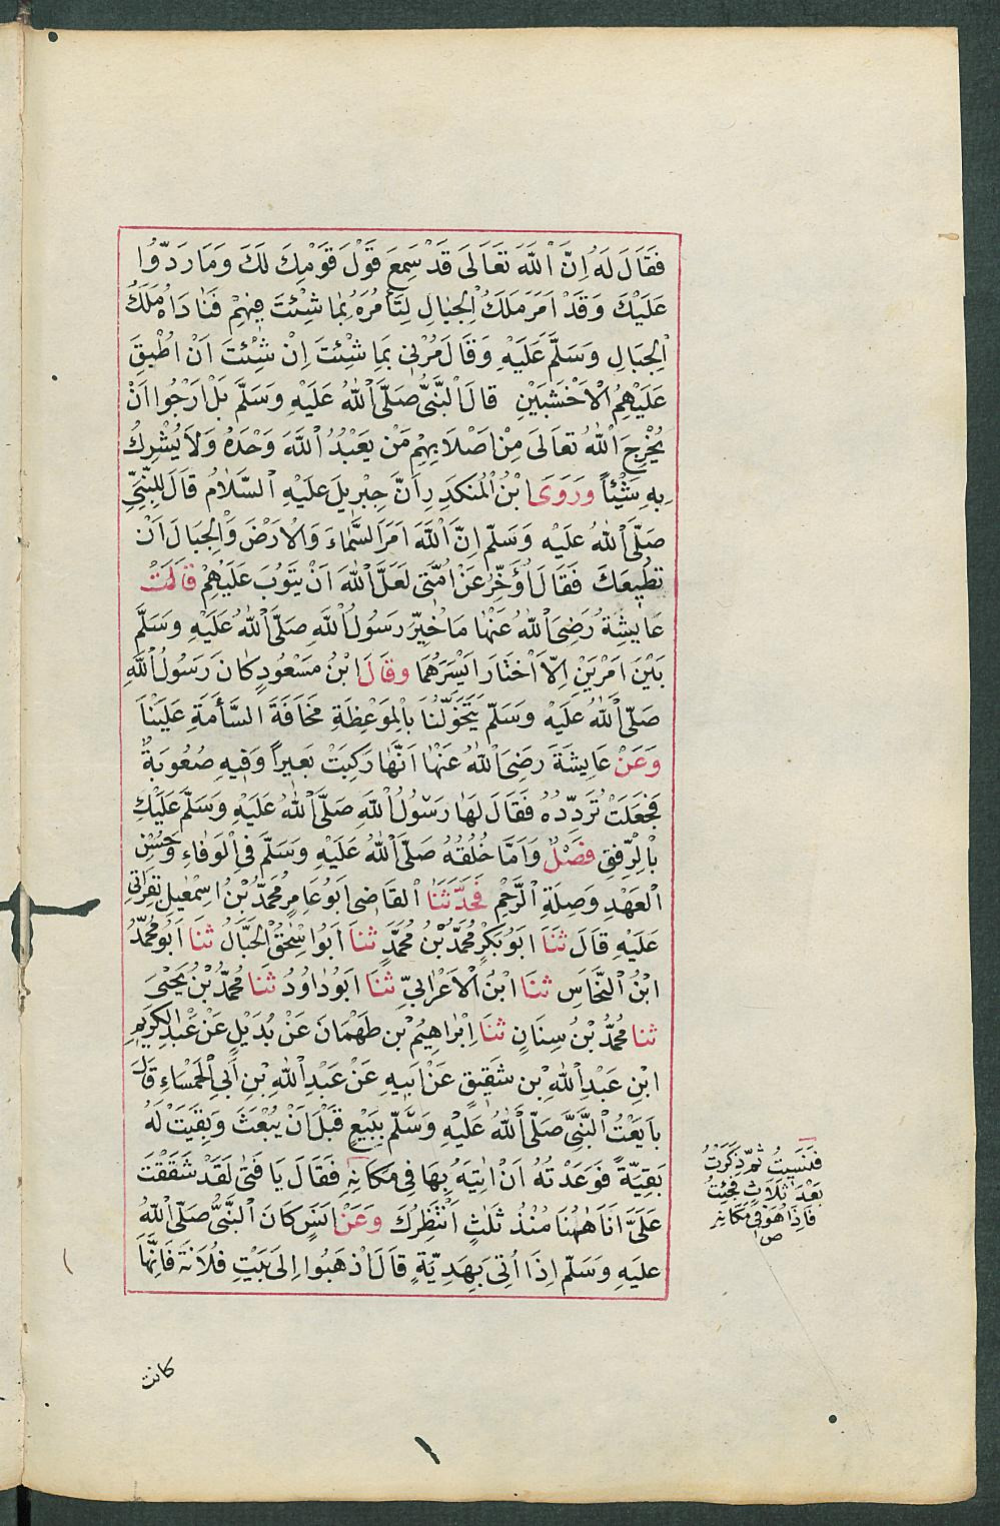 فَقَالَ لَهُ اِنَّ اللّٰهَ تَعَالَى قَدْ سَمِعَ قَوْلَ قَوْمِكَ لَكَ وَمَا رَدّوُا
عَلَيْكَ وَقَدْ اَمَرَ مَلَكَ الْجِبَالِ لِتَأْمُرَهُ بِمَا شِئْتَ فِيهِمْ فَنَادَاهُ مَلَكُ
الْجِبَالِ وَسَلَّمَ عَلَيْهِ وَقَالَ مُرْنِى بِمَا شِئْتَ اِنْ شِئْتَ اَنْ اُطْبِقَ
عَلَيْهِمُ الْاَخْشَبَيْنِ قَالَ النَّبِىُّ صَلَّى اللّٰهُ عَلَيْهِ وَسَلَّمَ بَلْ اَرْجُوا اَنْ
يُخْرِجَ اللّٰهُ تَعَالَى مِنْ اَصْلَابِهِمْ مَنْ يَعْبُدُ اللّٰهَ وَحْدَهُ وَلَا يُشْرِكُ
بِهِ شَيْئاً وَرَوَى ابْنُ الْمُنْكَدِرِ اَنَّ جِبْرِيلَ عَلَيْهِ السَّلَامُ قَالَ لِلنَّبِىِّ
صَلَّى اللّٰهُ عَلَيْهِ وَسَلَّمَ اِنَّ اللّٰهَ اَمَرَ السَّمَاءَ وَالْاَرْضَ وَالْجِبَالَ اَنْ
تُطِيعَكَ فَقَالَ اُؤَخِّرُ عَنْ اُمَّتِى لَعَلَّ اللّٰهَ اَنْ يَتُوبَ عَلَيْهِمْ قَالَتْ
عَايِشَةُ رَضِىَ اللّٰهُ عَنْهَا مَا خُيِّرَ رَسُولُ اللّٰهِ صَلَّى اللّٰهُ عَلَيْهِ وَسَلَّمَ
بَيْنَ اَمْرَيْنِ اِلَّا اخْتَارَ اَيْسَرَهُمَا وَقَالَ ابْنُ مَسْعُودٍ كَانَ رَسُولُ اللّٰهِ
صَلَّى اللّٰهُ عَلَيْهِ وَسَلَّمَ يَتَخَوَّلُنَا بِالْمَوْعِظَةِ مَخَافَةَ السَّأْمَةِ عَلَيْنَا
وَعَنْ عَايِشَةَ رَضِىَ اللّٰهُ عَنْهَا اَنَّهَا رَكِبَتْ بَعِيراً وَفِيهِ صُعُوبَةٌ
فَجَعَلَتْ تُرَدِّدُهُ فَقَالَ لَهَا رَسُولُ اللّٰهِ صَلَّى اللّٰهُ عَلَيْهِ وَسَلَّمَ عَلَيْكِ
بِالرِّفْقِ فَصْلٌ وَاَمَّا خُلُقُهُ صَلَّى اللّٰهُ عَلَيْهِ وَسَلَّمَ فِى الْوَفَاءِ وَحُسْنِ
الْعَهْدِ وَصِلَةِ الرَّحِمِ فَحَدَّثَنَا الْقَاضِى اَبُو عَامِرٍ مُحَمَّدُ بْنُ اِسْمٰعِيلَ بِقِرَاءَتِى
عَلَيْهِ قَالَ ثَنَا اَبُو بَكْرٍ مُحَمَّدُ بْنُ مُحَمَّدٍ ثَنَا اَبُوا اِسْحٰقَ الْحَبَّالُ ثَنَا اَبُو مُحَمَّدُ
ابْنُ النَّحَّاسِ ثَنَا ابْنُ الْاَعْرَابِىِّ ثَنَا اَبُو دَاوُدَ ثَنَا مُحَمَّدُ بْنُ يَحْيَى
ثَنَا مُحَمَّدُ بْنُ سِنَانٍ ثَنَا اِبْرَاهِيمُ بْنُ طَهْمَانَ عَنْ بُدَيْلٍ عَنْ عَبْدِ الْكَرِيمِ
ابْنِ عَبْدِ اللّٰهِ بْنِ شَقِيقٍ عَنْ اَبِيهِ عَنْ عَبْدِ اللّٰهِ بْنِ اَبِى الْحَمْسَاءِ قَالَ
بَايَعْتُ النَّبِىَّ صَلَّى اللّٰهُ عَلَيْهِ وَسَلَّمَ بِبَيْعٍ قَبْلَ اَنْ يُبْعَثَ وَبَقِيَتْ لَهُ
بَقِيَّةٌ فَوَعَدْتُهُ اَنْ اٰتِيَهُ بِهَا فِى مَكَانِهِ فَقَالَ يَا فَتَى لَقَدْ شَقَقْتَ
عَلَىَّ اَنَا هٰهُنَا مُنْذُ ثَلٰثٍ اَنْتَظِرُكَ وَعَنْ اَنَسٍ كَانَ النَّبِىُّ صَلَّى اللّٰهُ
عَلَيْهِ وَسَلَّمَ اِذَا اُتِىَ بِهَدِيَّةٍ قَالَ اذْهَبُوا اِلَى بَيْتِ فُلَانَةَ فَاِنَّهَا
فَنَسِيتُ ثُمَّ ذَكَرْتُ
بَعْدَ ثَلَاثٍ فَجِئْتُ
فَاِذَا هُوَ فِى مَكَانِهِ
ص
كانت